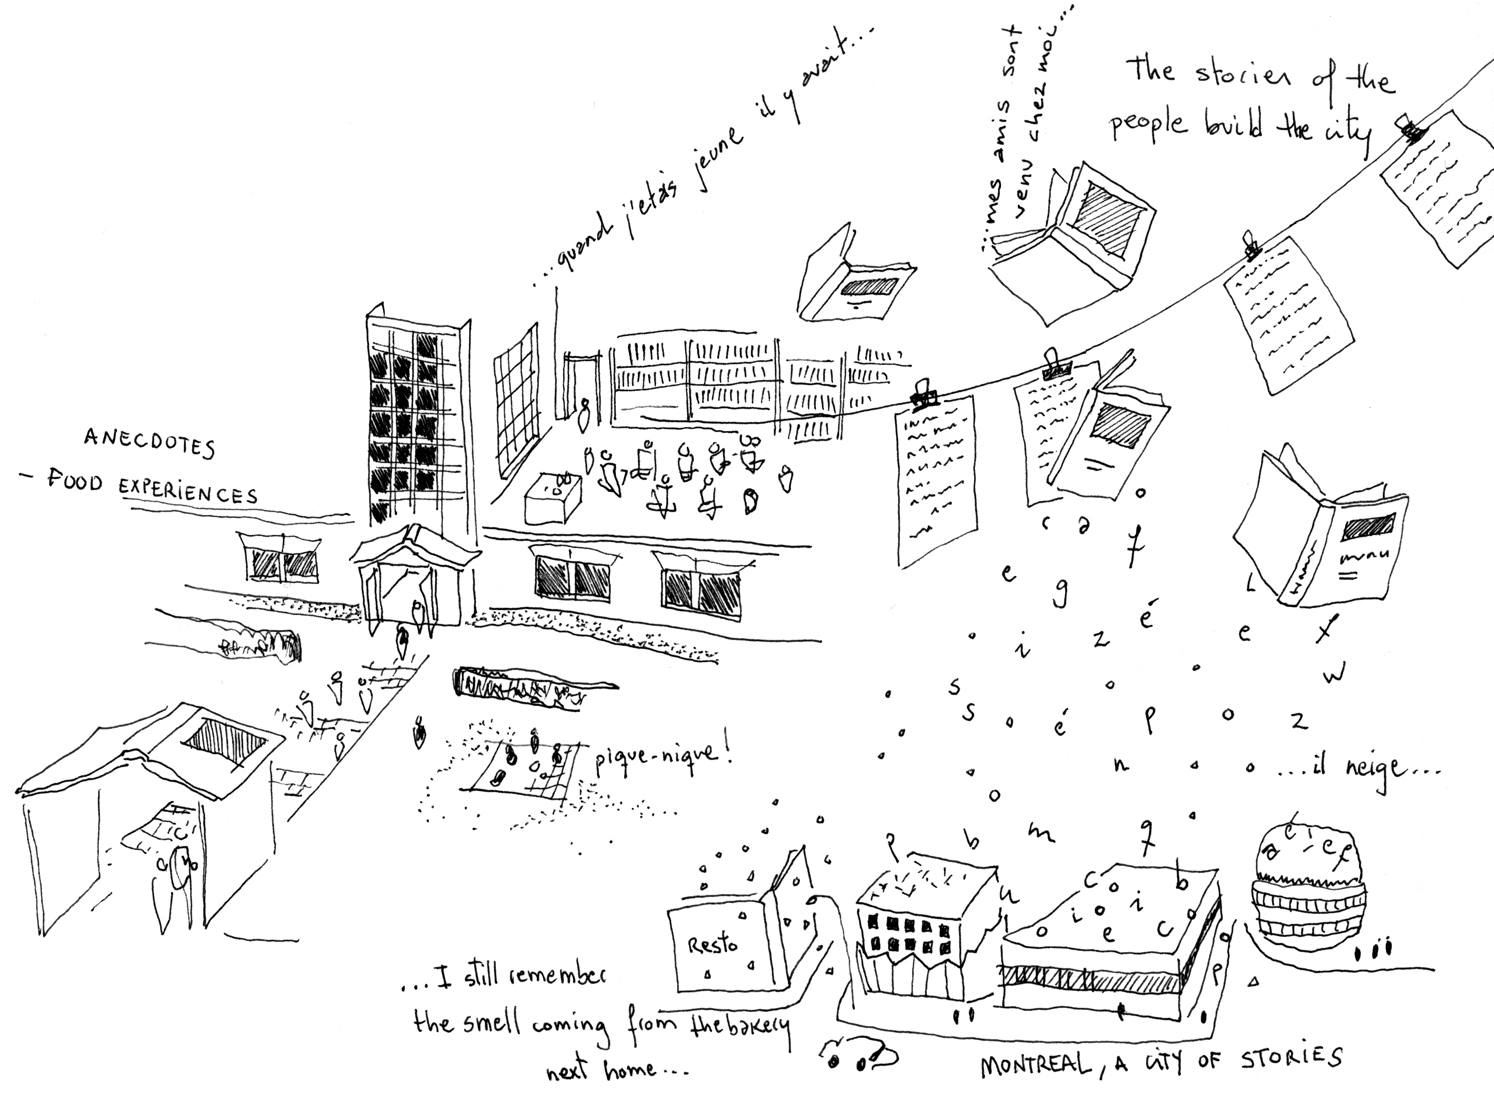 ...quand j'etais jeune il y avait...
...mes amis sont
venu chez moi...
The stories of the
people build the city
ANECDOTES
- FOOD EXPERIENCES
menu
pique-nique!
...il neige...
c a f
e g é
i z e f
L
s w
s é p z
n
p b m q
u
a é i e f
c i i b
e c
e
Resto
...I still remember
the smell coming from the bakery
next home...
MONTREAL, A CITY OF STORIES